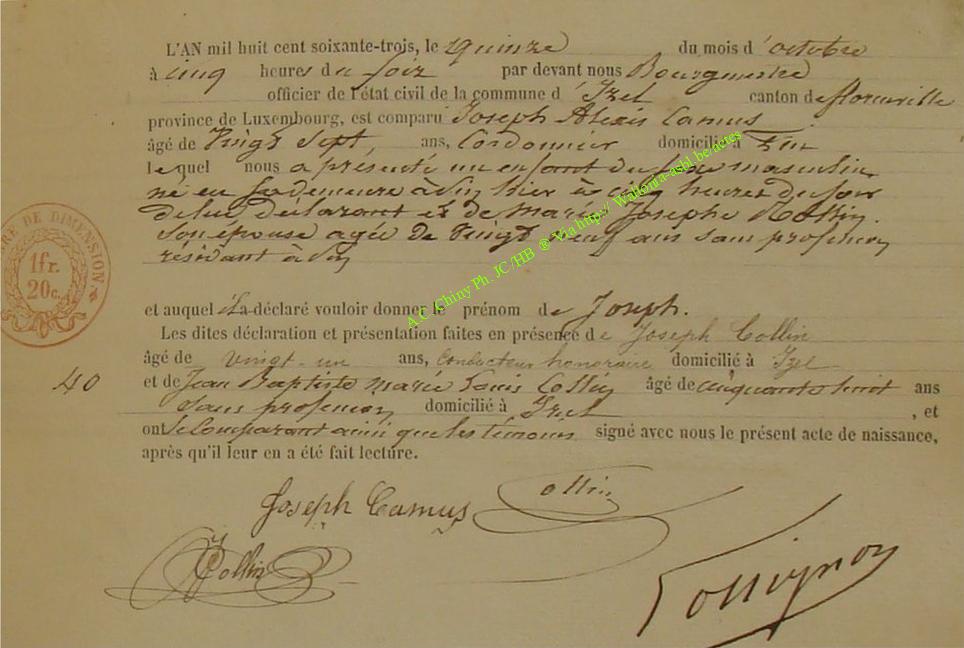 L'AN mil huit cent soixante-trois, le quinze du mois d'octobre
à cinq heures du soir par devant nous Bourgmestre
officier de l'état civil de la commune d'Izel canton de florenville
province de Luxembourg, est comparu Joseph Alexis Camus
âgé de vingt sept ans, Cordonnier domicilié à
lequel nous a présenté un enfant du sexe masculin
né en sa demeure à hier à cinq heures du soir
de lui déclarant et de Marie Josephe
son épouse agée de vingt neuf ans sans profession
résidant à
et auquel il a déclaré vouloir donner le prénom de Joseph.
Les dites déclaration et présentation faites en présence de Joseph Collin
âgé de vingt-un ans, Conducteur honoraire domicilié à Izel
40 et de Jean Baptiste Marie Louis Collin âgé de cinquante huit ans
sans profession domicilié à Izel , et
ont le Comparant ainsi que les témoins signé avec nous le présent acte de naissance,
après qu'il leur en a été fait lecture.
Joseph Camus Collin
J Collin
DE DIMENSION.
1fr.
20c.
A.C. Chiny Ph. JC/HB ® Via http:// Wallonia-asbl.be/actes